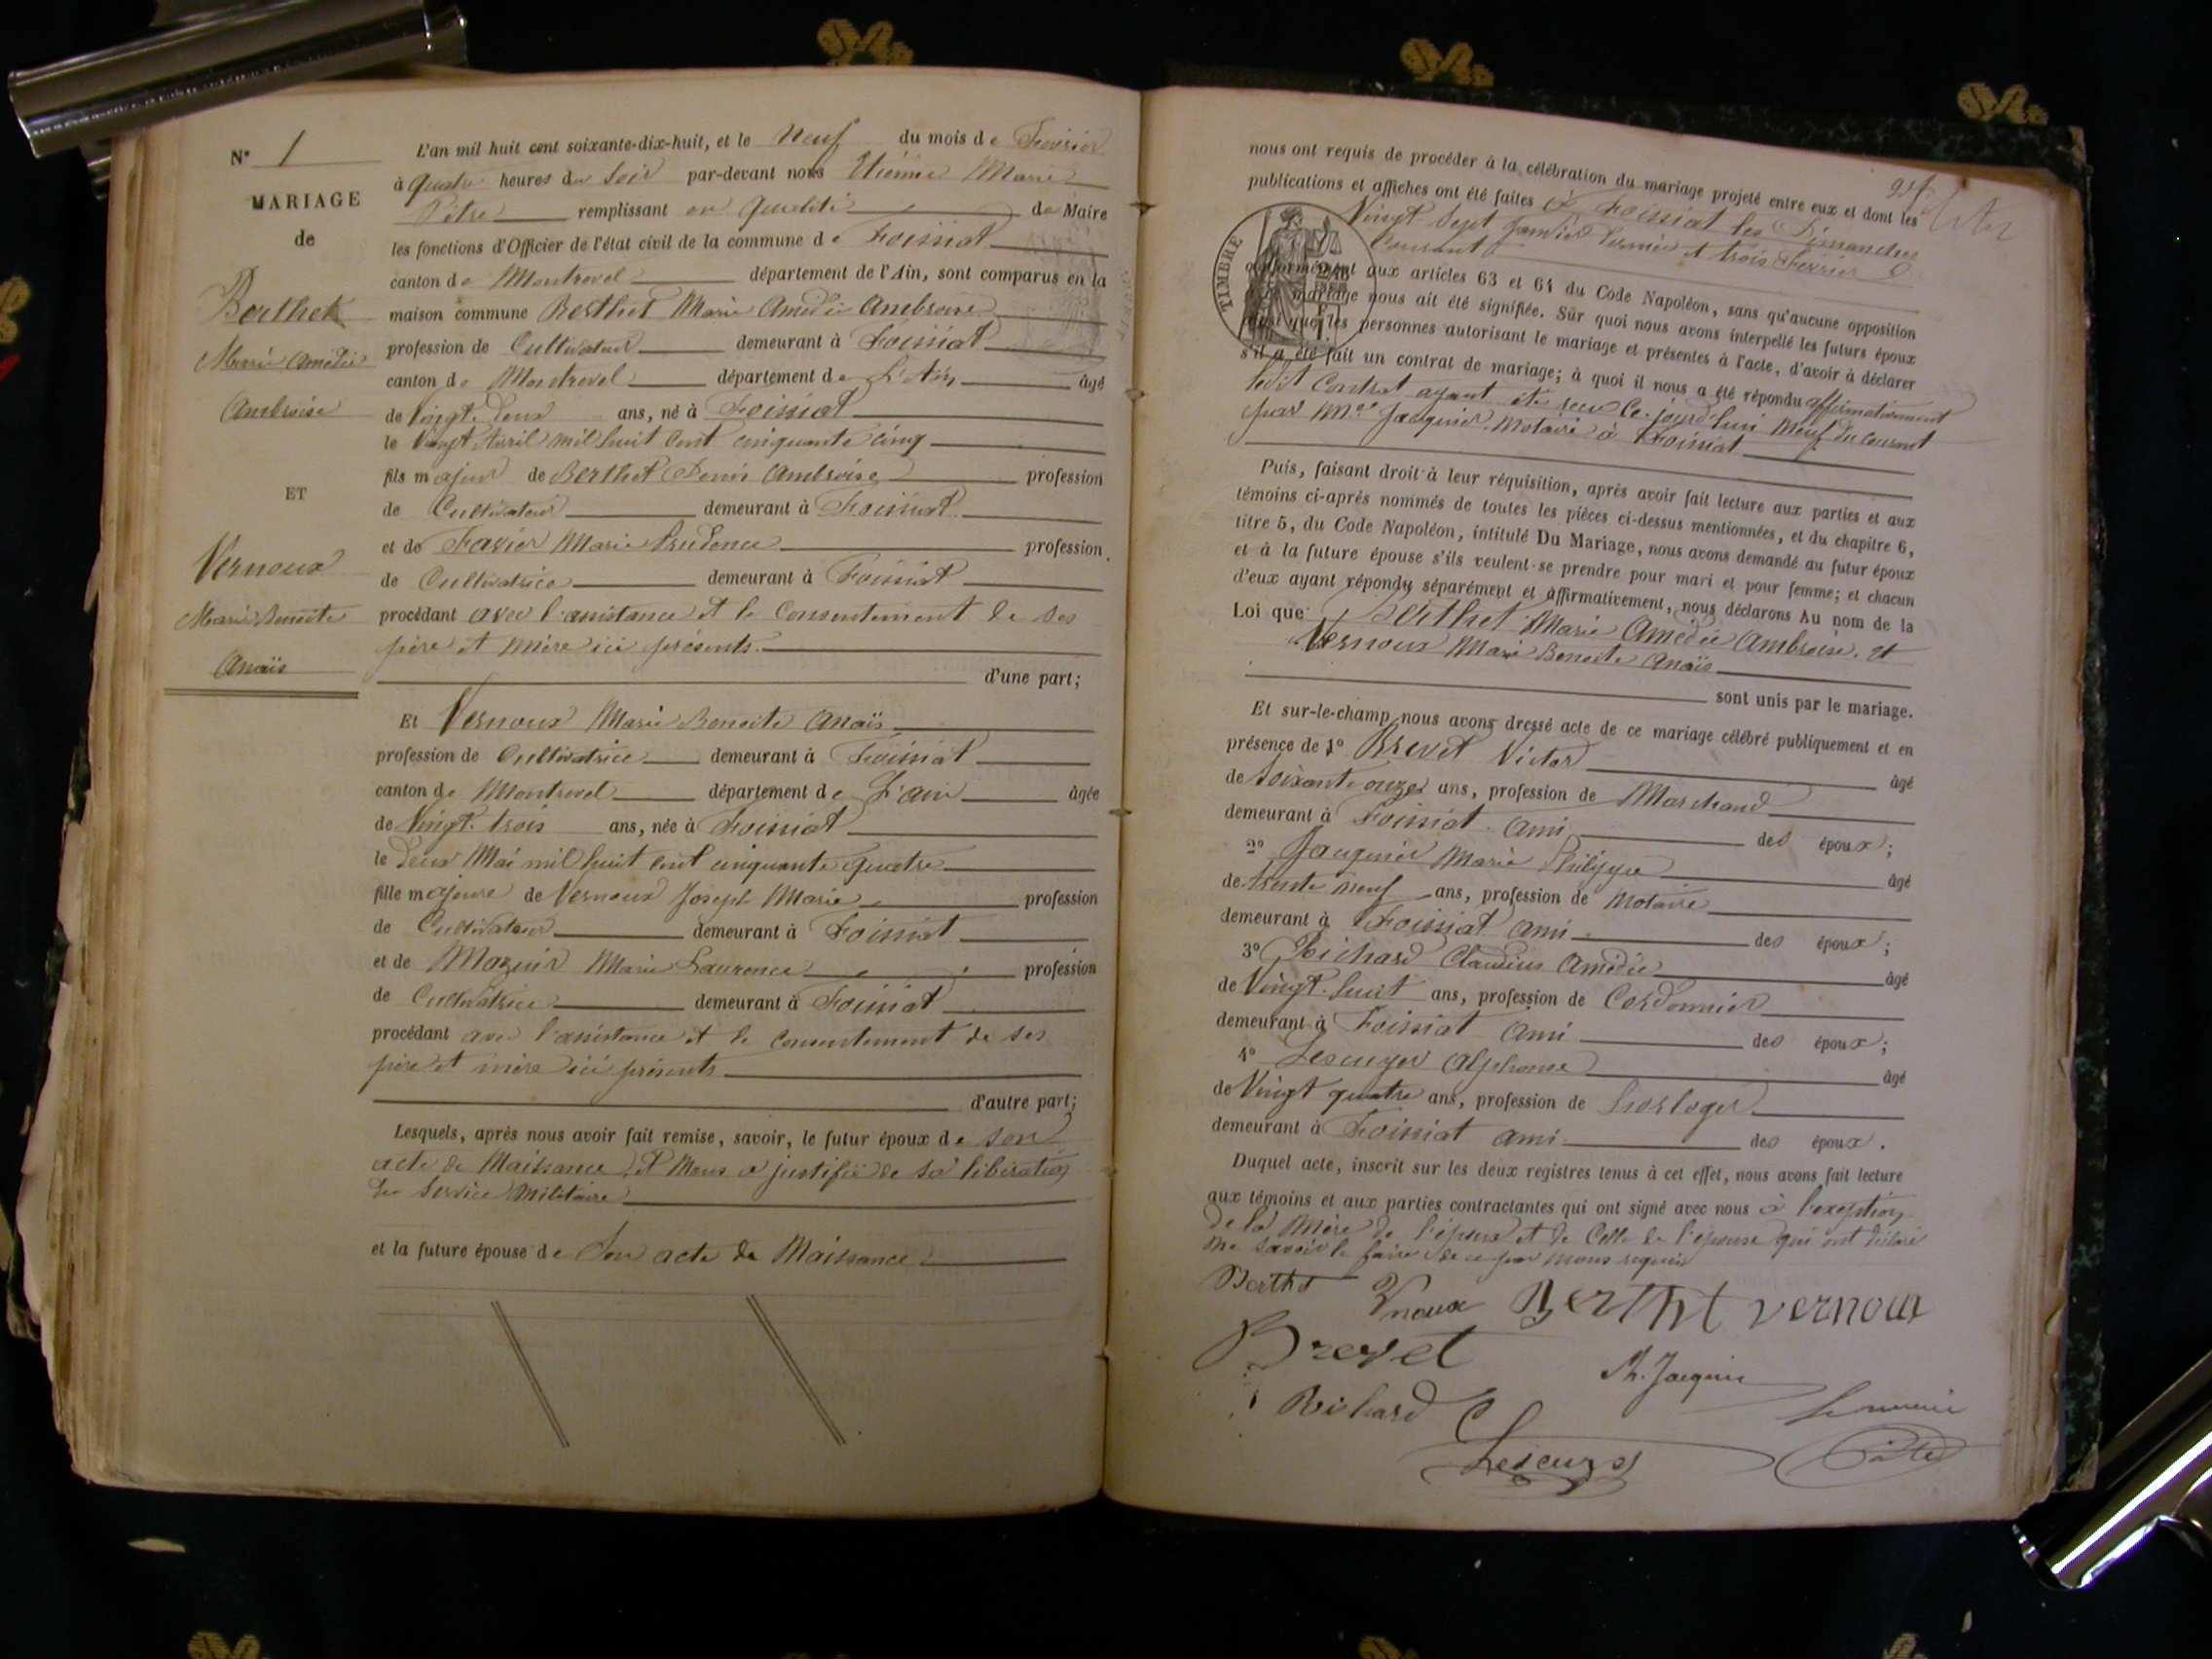 N° 1
MARIAGE
de
Berthet
Marie Amédée
Ambroise
ET
Vernoux
Marie Benoite
Anaïs
L'an mil huit cent soixante-dix-huit, et le Neuf du mois de Février
à quatre heures du Soir par-devant nous Etienne Marie
Pitre remplissant en qualité de Maire
les fonctions d'Officier de l'état civil de la commune de Foissiat
canton de Montrevel département de l'Ain, sont comparus en la
maison commune Berthet Marie Amédée Ambroise
profession de Cultivateur demeurant à Foissiat
canton de Montrevel département de L'Ain âgé
de Vingt-deux ans, né à Foissiat
le Vingt Avril mil huit cent cinquante cinq
fils majeur de Berthet Denis Ambroise profession
de Cultivateur demeurant à Foissiat
et de Favier Marie Prudence profession
de Cultivatrice demeurant à Foissiat
procédant avec l'assistance et le consentement de ses
père et mère ici présents.
d'une part;
Et Vernoux Marie Benoite Anaïs
profession de Cultivatrice demeurant à Foissiat
canton de Montrevel département de L'ain âgée
de Vingt-trois ans, née à Foissiat
le deux Mai mil huit cent cinquante quatre
fille majeure de Vernoux Joseph Marie profession
de Cultivateur demeurant à Foissiat
et de Mazuir Marie Laurence profession
de Cultivatrice demeurant à Foissiat
procédant avec l'assistance et le consentement de ses
père et mère ici présents
d'autre part;
Lesquels, après nous avoir fait remise, savoir, le futur époux de son
acte de Naissance, et nous a justifié de sa libération
du service militaire
et la future épouse de Son acte de Naissance
nous ont requis de procéder à la célébration du mariage projeté entre eux et dont les
publications et affiches ont été faites à Foissiat les Dimanches
Vingt Sept Janvier dernier et trois Février
Courant
TIMBRE
conformément aux articles 63 et 64 du Code Napoléon, sans qu'aucune opposition
mariage nous ait été signifiée. Sûr quoi nous avons interpellé les futurs époux
ainsi que les personnes autorisant le mariage et présentes à l'acte, d'avoir à déclarer
s'il a été fait un contrat de mariage; à quoi il nous a été répondu affirmativement
ledit Contrat ayant été reçu ce-jourd'hui Neuf du courant
par Me Jacquier, Notaire à Foissiat
Puis, faisant droit à leur réquisition, après avoir fait lecture aux parties et aux
témoins ci-après nommés de toutes les pièces ci-dessus mentionnées, et du chapitre 6,
titre 5, du Code Napoléon, intitulé Du Mariage, nous avons demandé au futur époux
et à la future épouse s'ils veulent se prendre pour mari et pour femme; et chacun
d'eux ayant répondu séparément et affirmativement, nous déclarons Au nom de la
Loi que Berthet Marie Amédée Ambroise. et
Vernoux Marie Benoite Anaïs
sont unis par le mariage.
Et sur-le-champ nous avons dressé acte de ce mariage célébré publiquement et en
présence de 1° Brevet Victor âgé
de Soixante onze ans, profession de Marchand
demeurant à Foissiat Ami des époux;
2° Jacquier Marie Philippe âgé
de trente neuf ans, profession de Notaire
demeurant à Foissiat ami des époux;
3° Richard Claudius Amédée âgé
de Vingt-huit ans, profession de Cordonnier
demeurant à Foissiat Ami des époux;
4° Lescuyer Alphonse âgé
de Vingt quatre ans, profession de horloger
demeurant à Foissiat ami des époux.
Duquel acte, inscrit sur les deux registres tenus à cet effet, nous avons fait lecture
aux témoins et aux parties contractantes qui ont signé avec nous à l'exception
de la Mère de l'époux et de Celle de l'épouse qui ont déclaré
ne savoir le faire de ce par nous requis
Berthet Vnoux Berthet vernoux
Brevet Ph. Jacquier
Richard C Le maire
Lescuyer Pitre